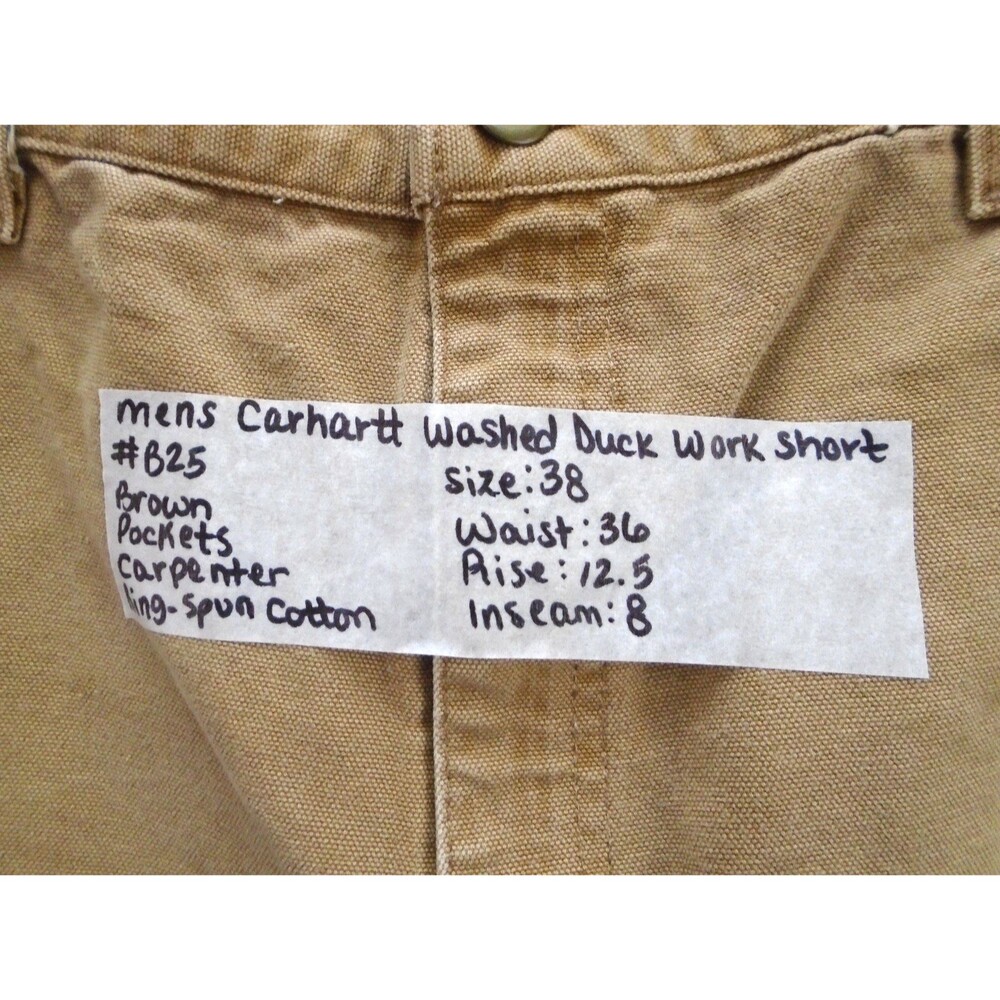 mens Carhartt Washed Duck Work Short
#B25
Size: 38
Brown
Waist: 36
Pockets
Rise: 12.5
Carpenter
Ring-Spun Cotton
Inseam: 8